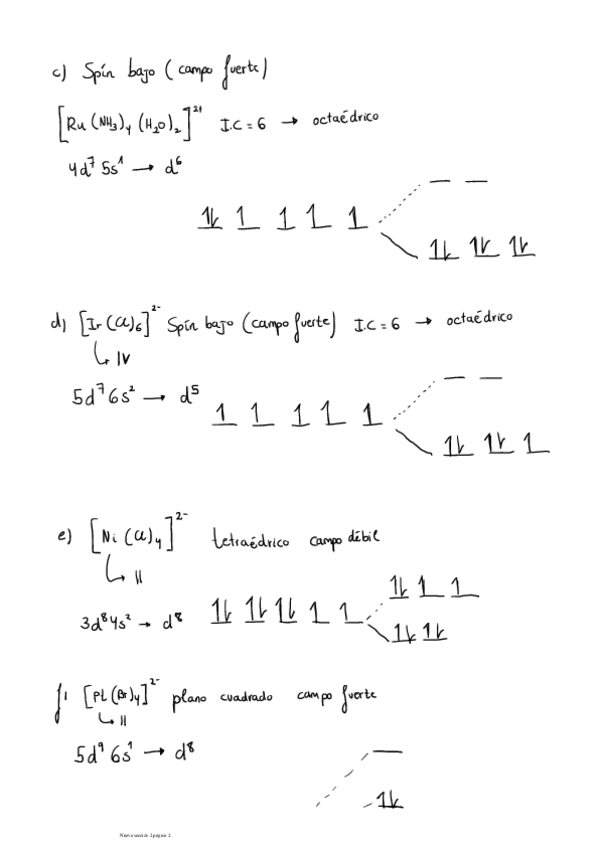 c) Spín bajo (campo fuerte)
[Ru(NH₃)₄(H₂O)₂]²⁺ I.C = 6 → octaédrico
4d⁷ 5s¹ → d⁶
d) [Ir(Cl)₆]²⁻ Spín bajo (campo fuerte) I.C = 6 → octaédrico
↳ IV
5d⁷ 6s² → d⁵
e) [Ni(Cl)₄]²⁻ tetraédrico campo débil
↳ II
3d⁸ 4s² → d⁸
f) [Pt(Br)₄]²⁻ plano cuadrado campo fuerte
↳ II
5d⁹ 6s¹ → d⁸
Nueva sección 2 página 2